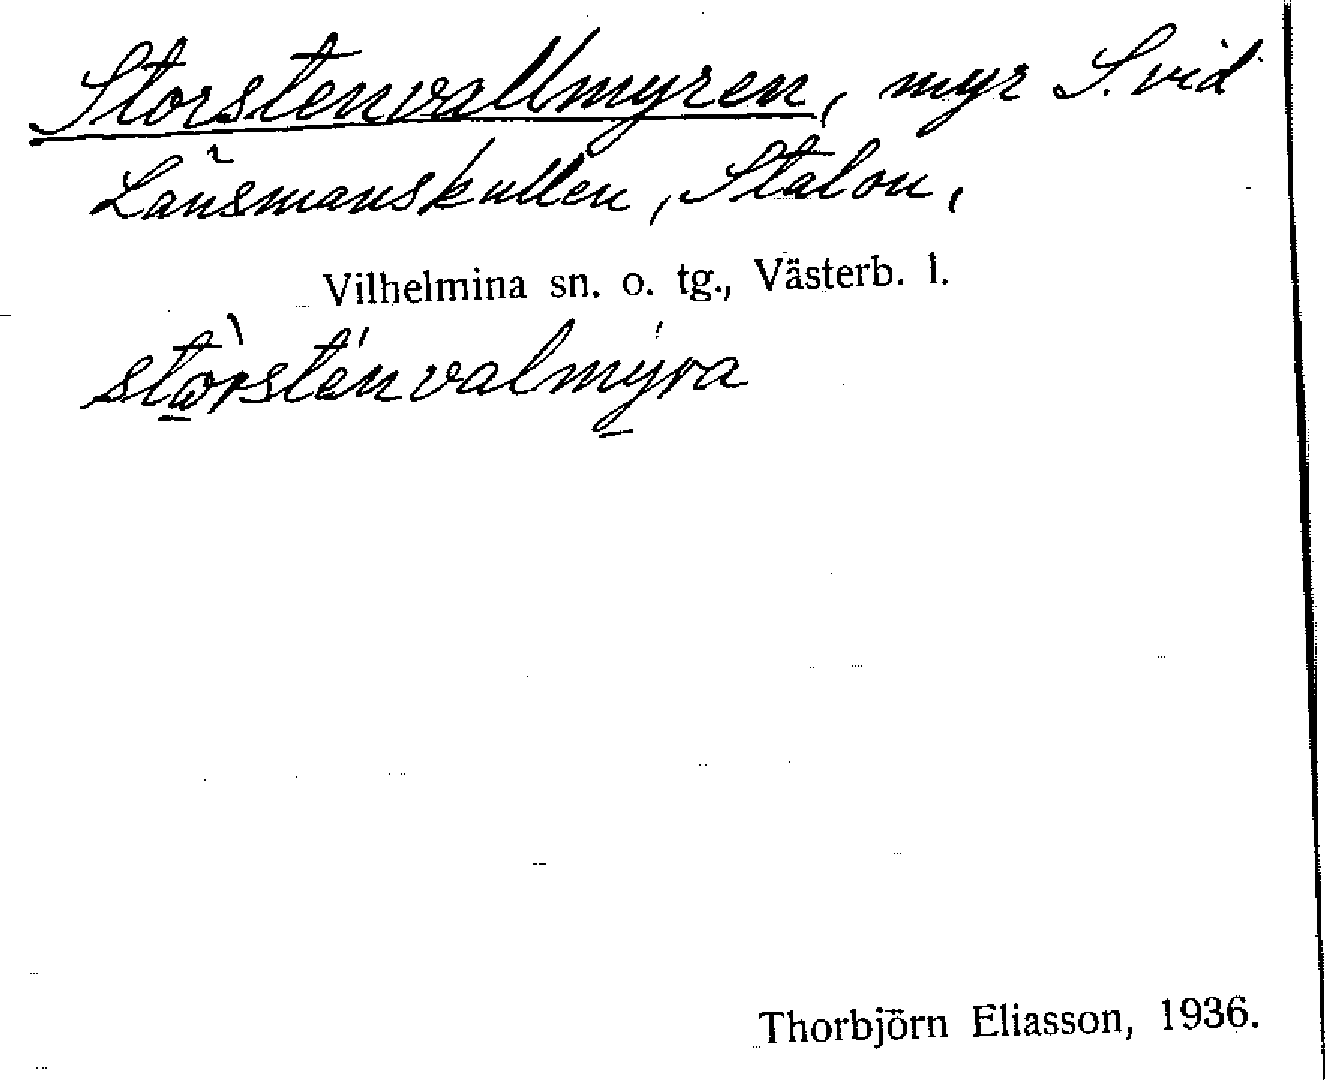 Storstenvallmyren, myr S. vid
Länsmanskullen, Stalon,
Vilhelmina sn. o. tg., Västerb. l.
stòrsténvalmýra
Thorbjörn Eliasson, 1936.